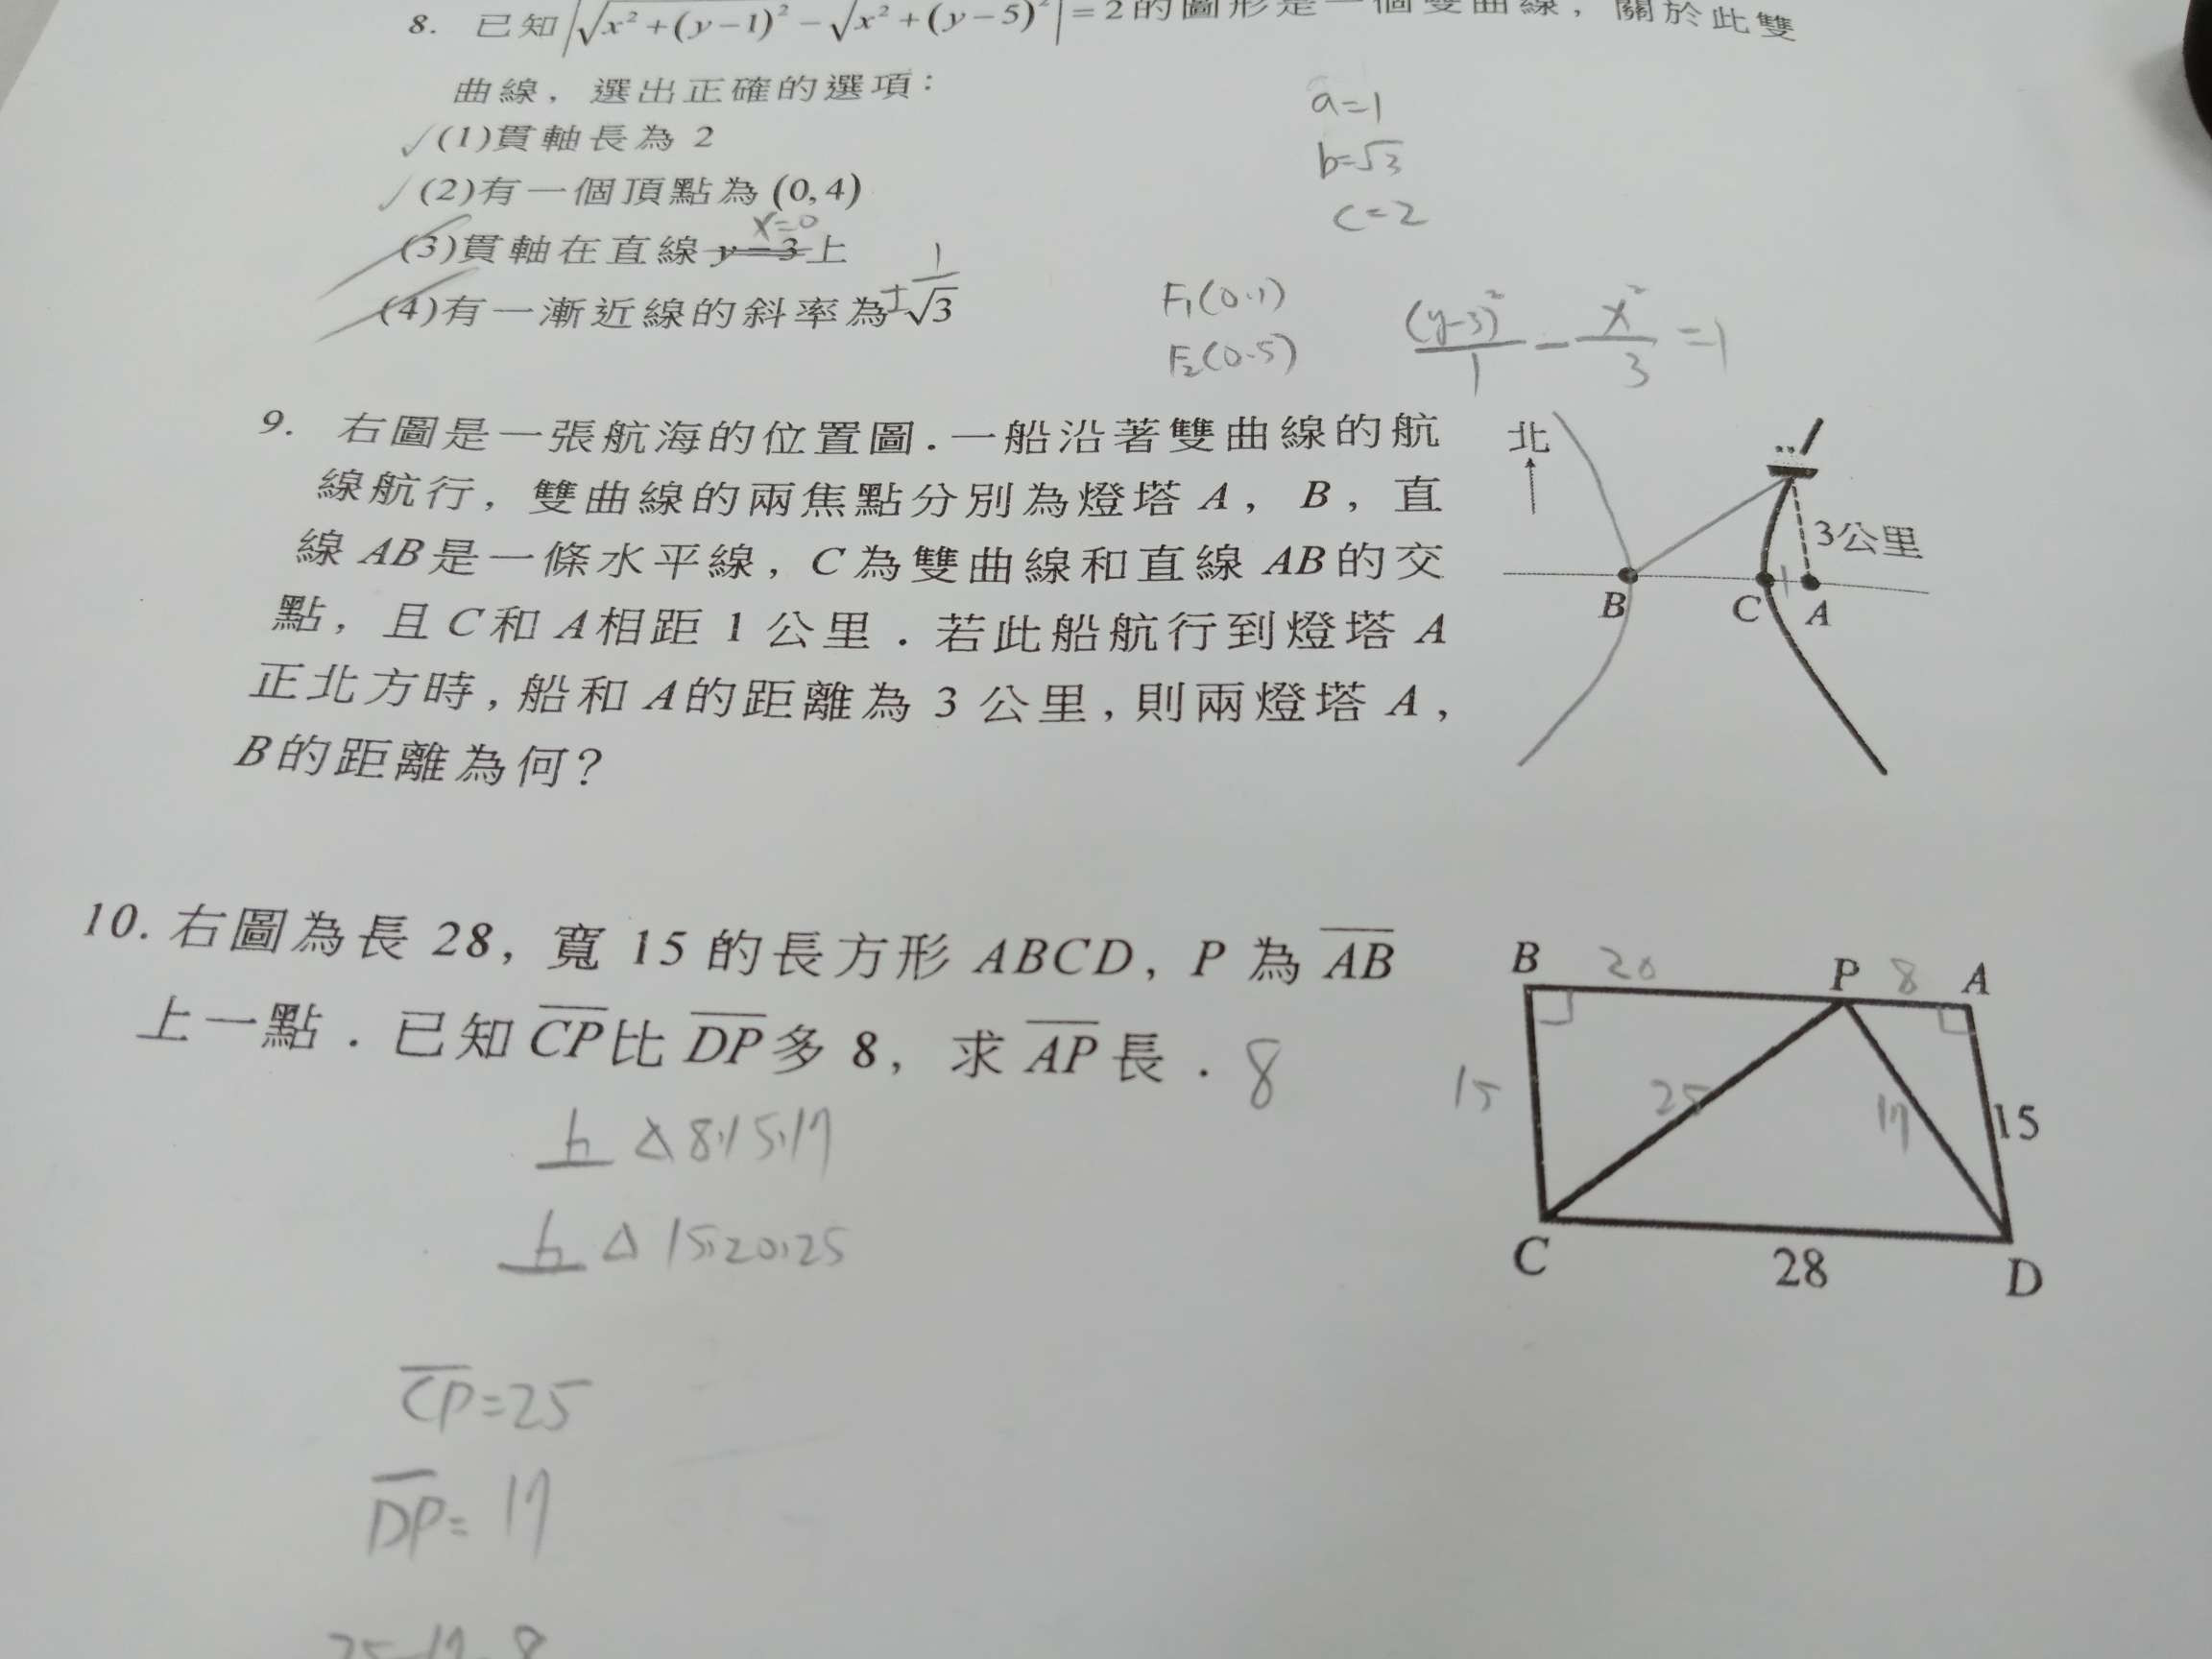 8. 已知|√x²+(y-1)² - √x²+(y-5)²|=2的圖形是一個雙曲線，關於此雙
曲線，選出正確的選項：
a=1
✓(1)貫軸長為 2
b=√3
✓(2)有一個頂點為(0,4)
c=2
x=0
(3)貫軸在直線y=3上
(4)有一漸近線的斜率為±1/√3
F₁(0.1)
F₂(0.5)
(y-3)²/1 - x²/3 =1
9. 右圖是一張航海的位置圖.一船沿著雙曲線的航
線航行，雙曲線的兩焦點分別為燈塔A，B，直
線AB是一條水平線，C為雙曲線和直線AB的交
點，且C和A相距1公里.若此船航行到燈塔A
正北方時，船和A的距離為3公里，則兩燈塔A，
B的距離為何？
北
3公里
B C 1 A
10. 右圖為長28，寬15的長方形ABCD，P為AB
上一點.已知CP比DP多8，求AP長. 8
B 20 P 8 A
15 25 17 15
C 28 D
Δ 8,15,17
Δ 15,20,25
CP=25
DP=17
25-17=8